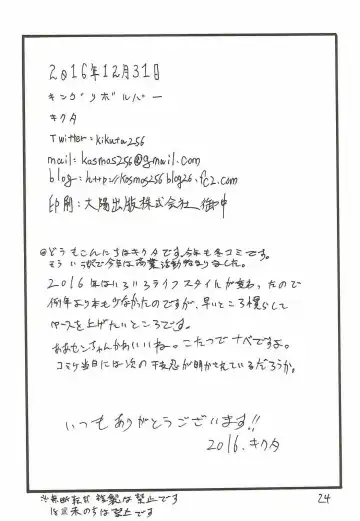 2016年12月31日
キングリボルバー
キクタ
Twitter:kikuta256
mail:kosmos256@gmail.com
blog:http://kosmos256.blog26.fc2.com
印刷:大陽出版株式会社 御中
@どうもこんにちはキクタです。今年も冬コミです。
そういう訳で今年は
2016年はいろいろライフスタイルが変わったので
例年より本も少なかったのですが、早いところ慣らして
ペースを上げたいところです。
ちゃんかわいいね。こたつでナベですよ。
コミケ当日には次の が明かされているだろうか。
いつもありがとうございます!!
2016.キクタ
24
※無断転載 複製は禁止です
18才未満の は禁止です